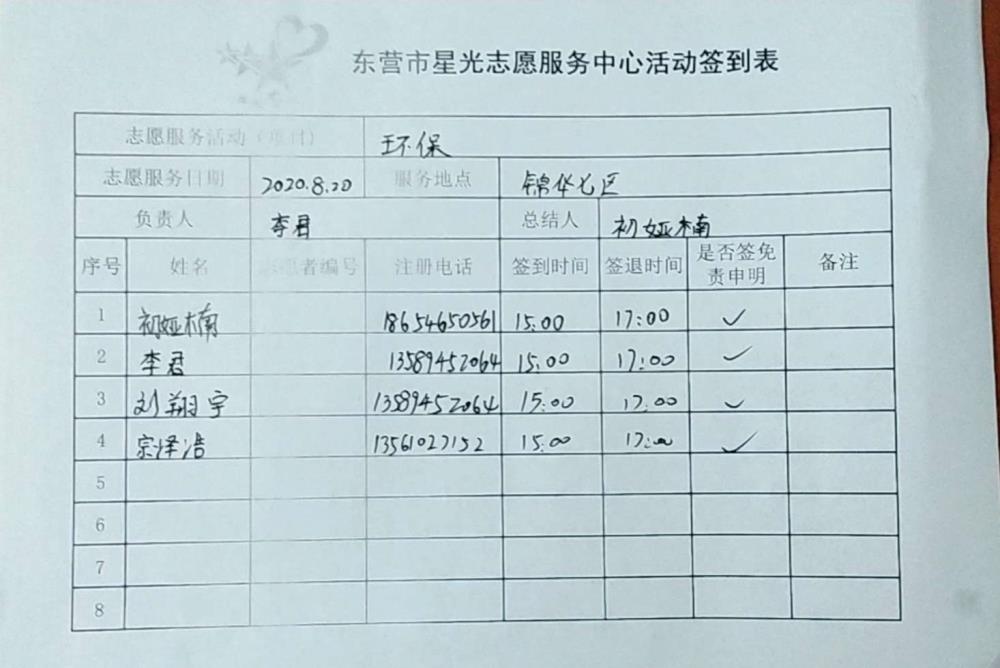 东营市星光志愿服务中心活动签到表
志愿服务活动（项目） 环保
志愿服务日期 2020.8.20 服务地点 锦华七区
负责人 李君 总结人 初娅楠
序号 姓名 志愿者编号 注册电话 签到时间 签退时间 是否签免责申明 备注
1 初娅楠 18654650561 15:00 17:00 ✓
2 李君 13589452064 15:00 17:00 ✓
3 刘翔宇 13589452064 15:00 17:00 ✓
4 宗泽浩 13561027152 15:00 17:00 ✓
5
6
7
8